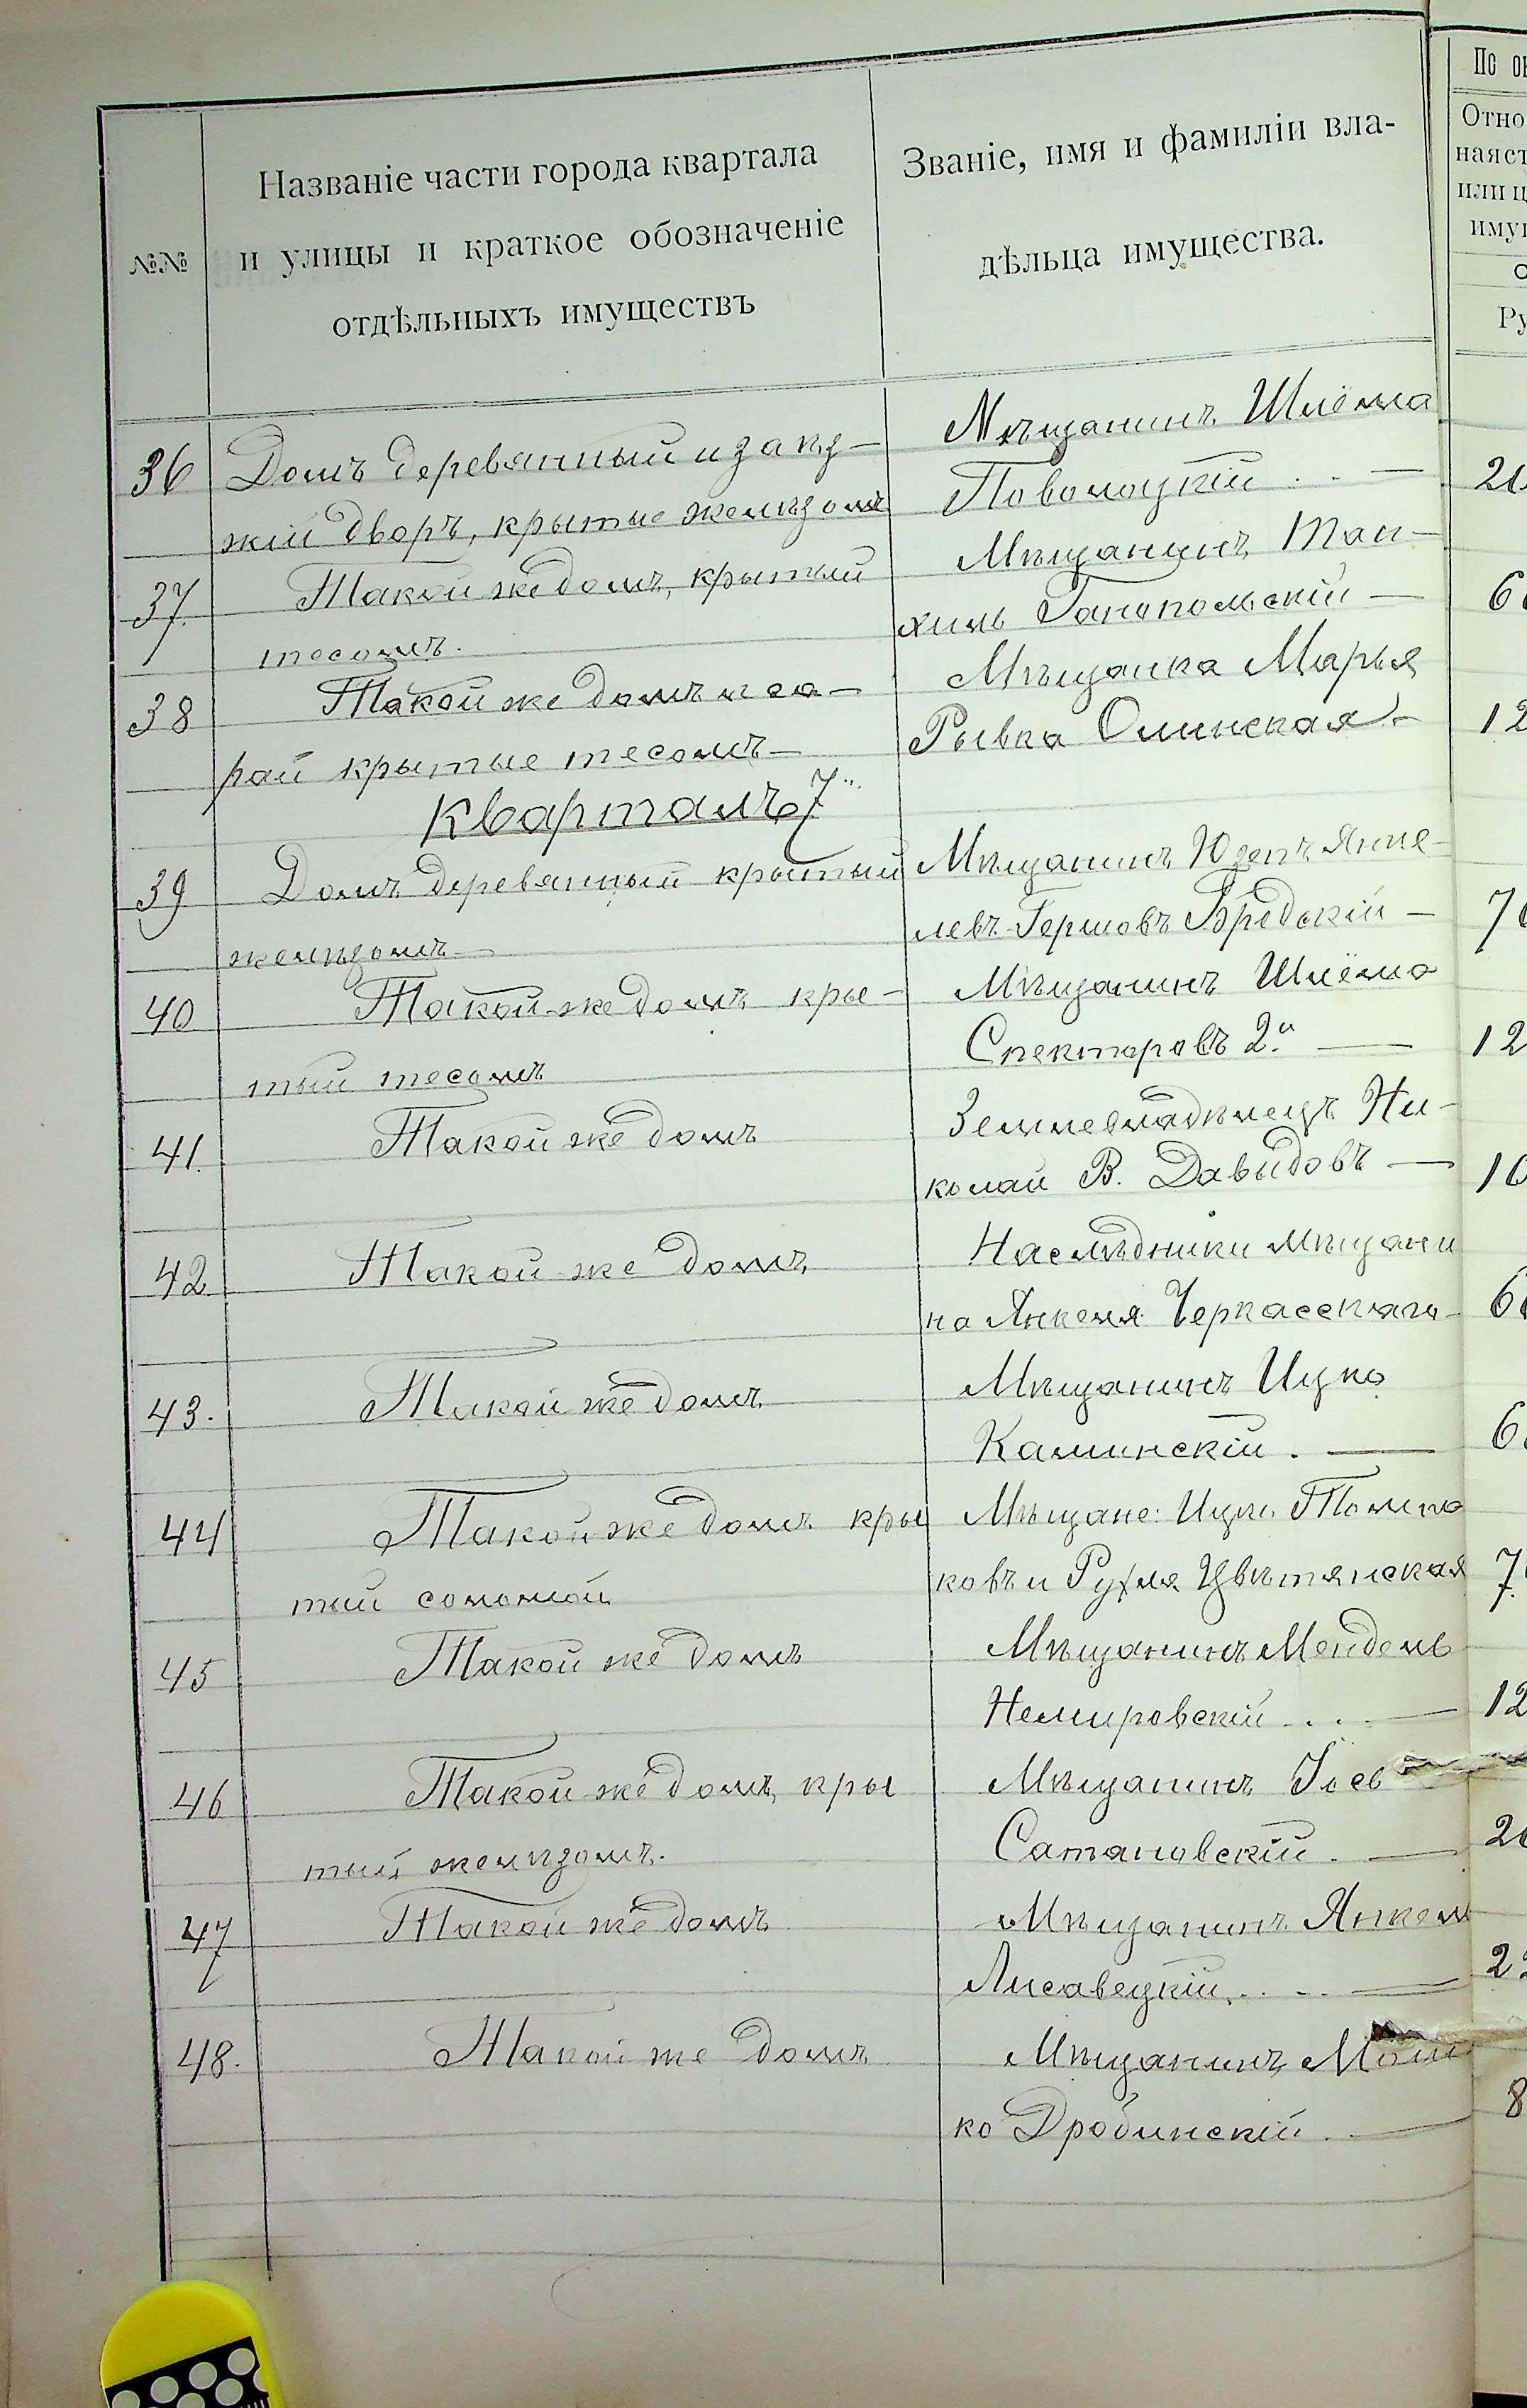 №№
Названіе части города квартала
и улицы и краткое обозначеніе
отдѣльныхъ имуществъ
Званіе, имя и фамиліи вла-
дѣльца имущества.
По
Отно
наяст
или ц
иму
Ру
36 Домъ деревянный и заѣз-
жій дворъ, крытые желѣзомъ
Мѣщанинъ Шлёма
Поволоцкій . . —
37. Такой же домъ, крытый
тесомъ.
Мѣщанинъ
Ганопольскій —
38 Такой же домъ и са-
рай крытые тесомъ —
Мѣщанка Марья
Рывка Олинская —
Кварталъ 7
39 Домъ деревянный крытый
желѣзомъ —
Мѣщанинъ Янке-
левъ-Гершовъ Бродскій —
40 Такой же домъ кры-
тый тесомъ
Мѣщанинъ Шлёма
Спекторовъ 2й —
41. Такой же домъ
Землевладѣлецъ Ни-
колай В. Давыдовъ —
42 Такой же домъ
Наслѣдники мѣщани
на Янкеля Черкасскаго
43. Такой же домъ
Мѣщанинъ Ицко
Каминскій. —
44 Такой же домъ кры
тый соломой
Мѣщане: Ицко Толма
ковъ и Рухля Цвѣтянская
45 Такой же домъ
Мѣщанинъ Мендель
Немировскій . . . —
46 Такой же домъ, кры
тый желѣзомъ.
Мѣщанинъ Іось
Сатановскій. —
47 Такой же домъ
Мѣщанинъ Янкель
Лисавецкій. . . . —
48. Такой же домъ
Мѣщанинъ Мош
ко Дробинскій . —